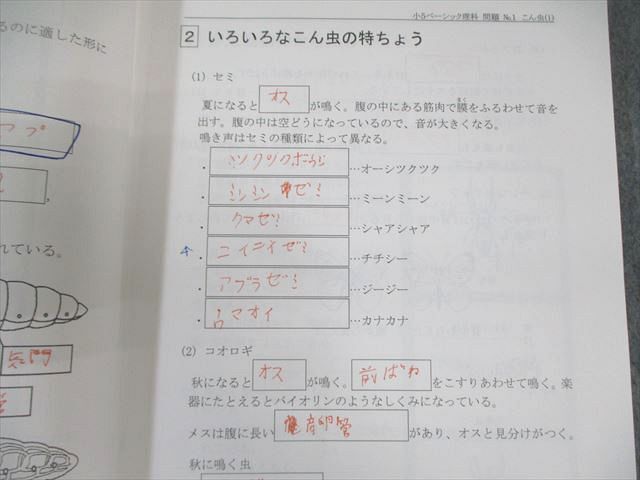 るのに適した形に
れている。
気門
管
小5ベーシック理科 問題 №1 こん虫(1)
2 いろいろなこん虫の特ちょう
(1) セミ
夏になると オス が鳴く。腹の中にある筋肉で膜をふるわせて音を
出す。腹の中は空どうになっているので、音が大きくなる。
鳴き声はセミの種類によって異なる。
・ …オーシツクツク
・ミンミンゼミ…ミーンミーン
・クマゼミ…シャアシャア
・ニイニイゼミ…チチシー
・アブラゼミ…ジージー
・ …カナカナ
(2) コオロギ
秋になると オス が鳴く。 前ばね をこすりあわせて鳴く。楽
器にたとえるとバイオリンのようなしくみになっている。
メスは腹に長い 産卵管 があり、オスと見分けがつく。
秋に鳴く虫